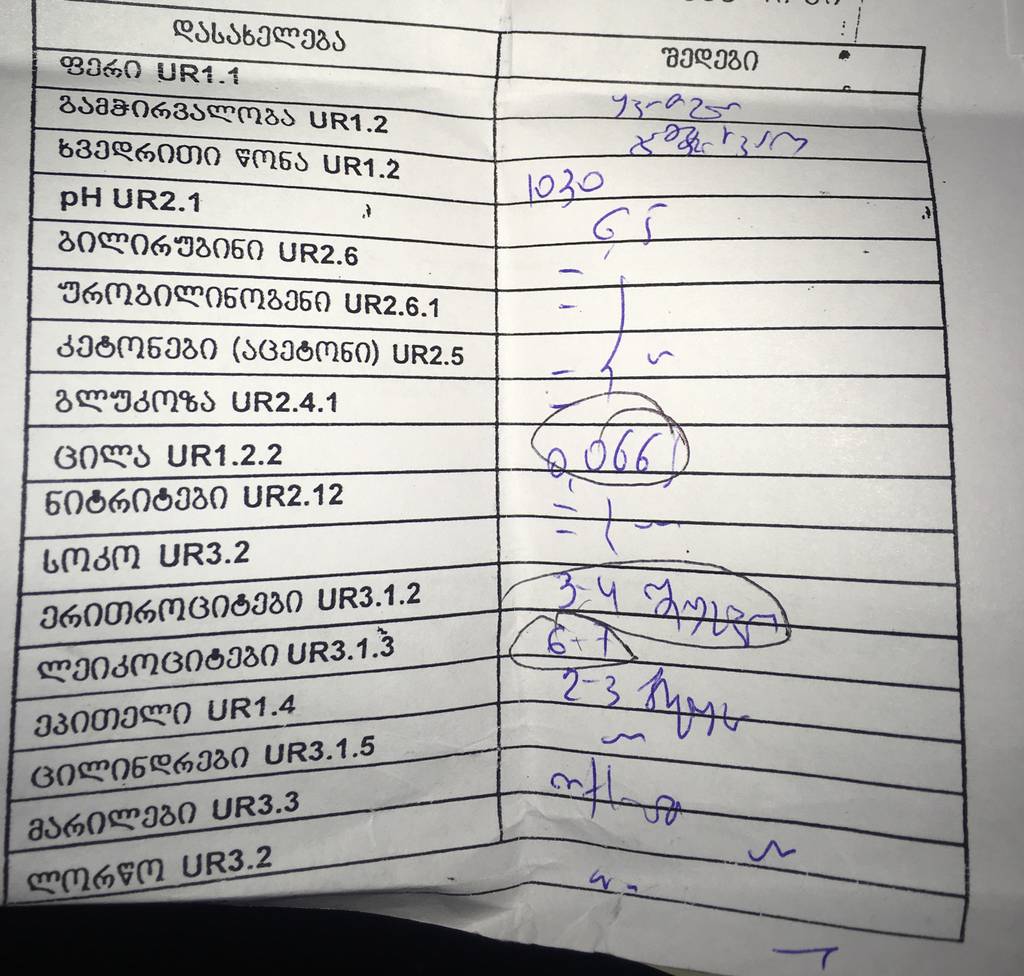 დასახელება შედეგი
ფერი UR1.1
გამჭირვალობა UR1.2
ხვედრითი წონა UR1.2 1030
pH UR2.1
ბილირუბინი UR2.6 -
ურობილინოგენი UR2.6.1 -
კეტონები (აცეტონი) UR2.5 -
გლუკოზა UR2.4.1 -
ცილა UR1.2.2 0,066
ნიტრიტები UR2.12 -
სოკო UR3.2 -
ერითროციტები UR3.1.2 3-4
ლეიკოციტები UR3.1.3
ეპითელი UR1.4 2-3
ცილინდრები UR3.1.5
მარილები UR3.3
ლორწო UR3.2